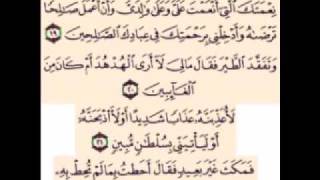 نِعْمَتَكَ الَّتِي أَنْعَمْتَ عَلَيَّ وَعَلَىٰ وَالِدَيَّ وَأَنْ أَعْمَلَ صَالِحًا
تَرْضَاهُ وَأَدْخِلْنِي بِرَحْمَتِكَ فِي عِبَادِكَ الصَّالِحِينَ ١٩
وَتَفَقَّدَ الطَّيْرَ فَقَالَ مَا لِيَ لَا أَرَى الْهُدْهُدَ أَمْ كَانَ مِنَ
الْغَائِبِينَ ٢٠
لَأُعَذِّبَنَّهُ عَذَابًا شَدِيدًا أَوْ لَأَاذْبَحَنَّهُ
أَوْ لَيَأْتِيَنِّي بِسُلْطَانٍ مُّبِينٍ ٢١
فَمَكَثَ غَيْرَ بَعِيدٍ فَقَالَ أَحَطتُ بِمَا لَمْ تُحِطْ بِهِ